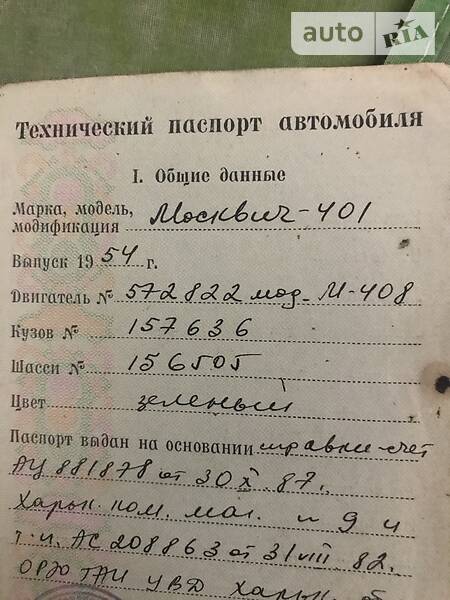 auto RIA
Технический паспорт автомобиля
I. Общие данные
Марка, модель, модификация Москвич-401
Выпуск 1954 г.
Двигатель № 572822 мод. М-408
Кузов № 157636
Шасси № 156505
Цвет зеленый
Паспорт выдан на основании справки-счет
АЦ 881878 от 30 X 87.
Харьк. ком. маг. н 9 и
т.п. АС 208863 от 31 VIII 82.
ОРЭО ГАИ УВД Харьк.